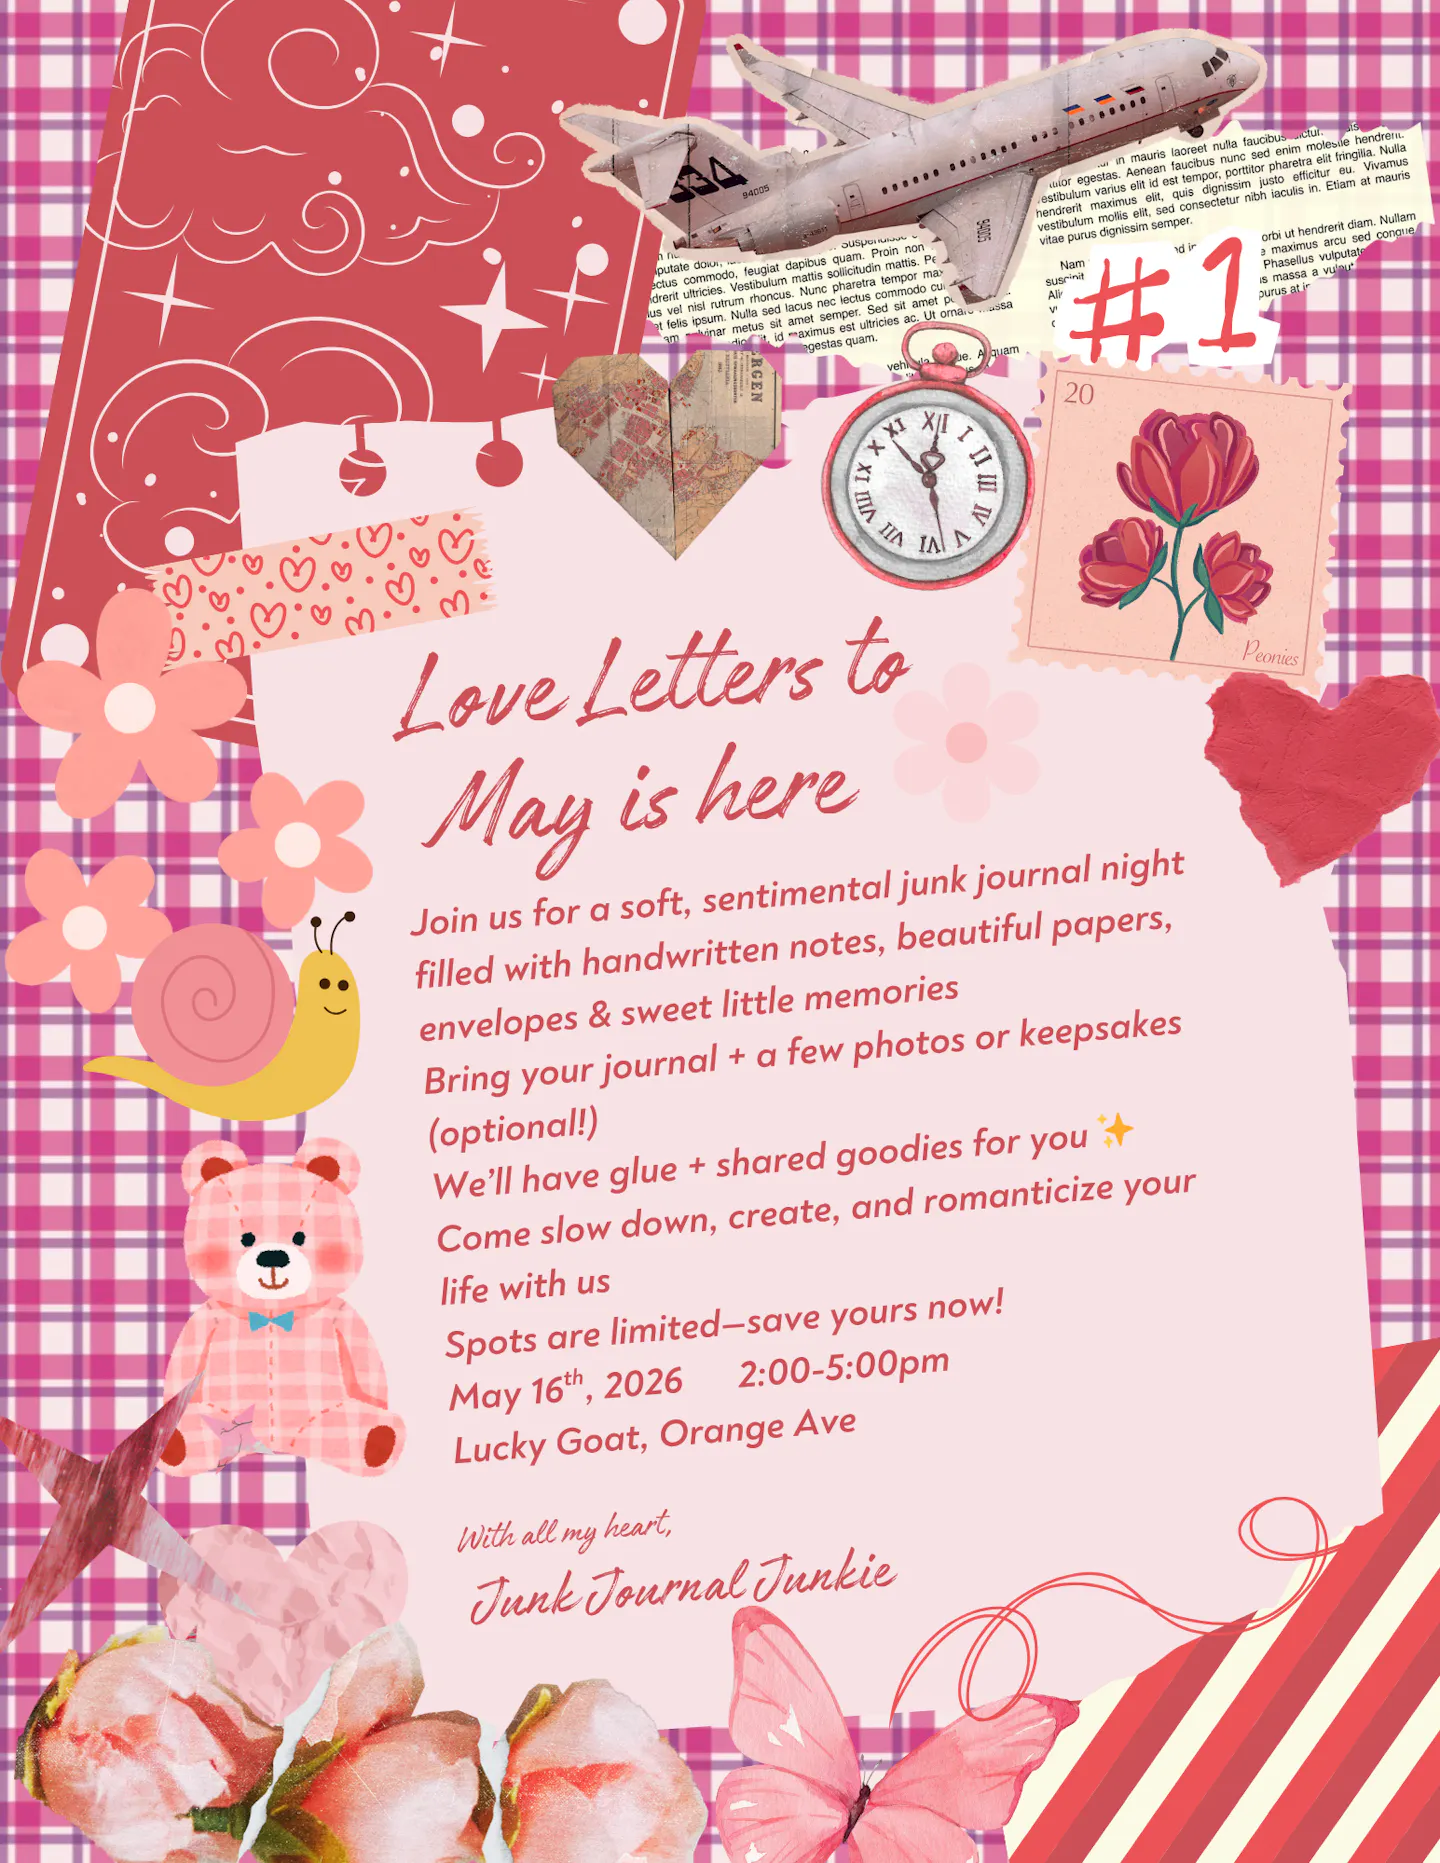 94005
94005
#1
20
Peonies
Love Letters to
May is here
Join us for a soft, sentimental junk journal night
filled with handwritten notes, beautiful papers,
envelopes & sweet little memories
Bring your journal + a few photos or keepsakes
(optional!)
We'll have glue + shared goodies for you ✨
Come slow down, create, and romanticize your
life with us
Spots are limited—save yours now!
May 16th, 2026 2:00-5:00pm
Lucky Goat, Orange Ave
With all my heart,
Junk Journal Junkie